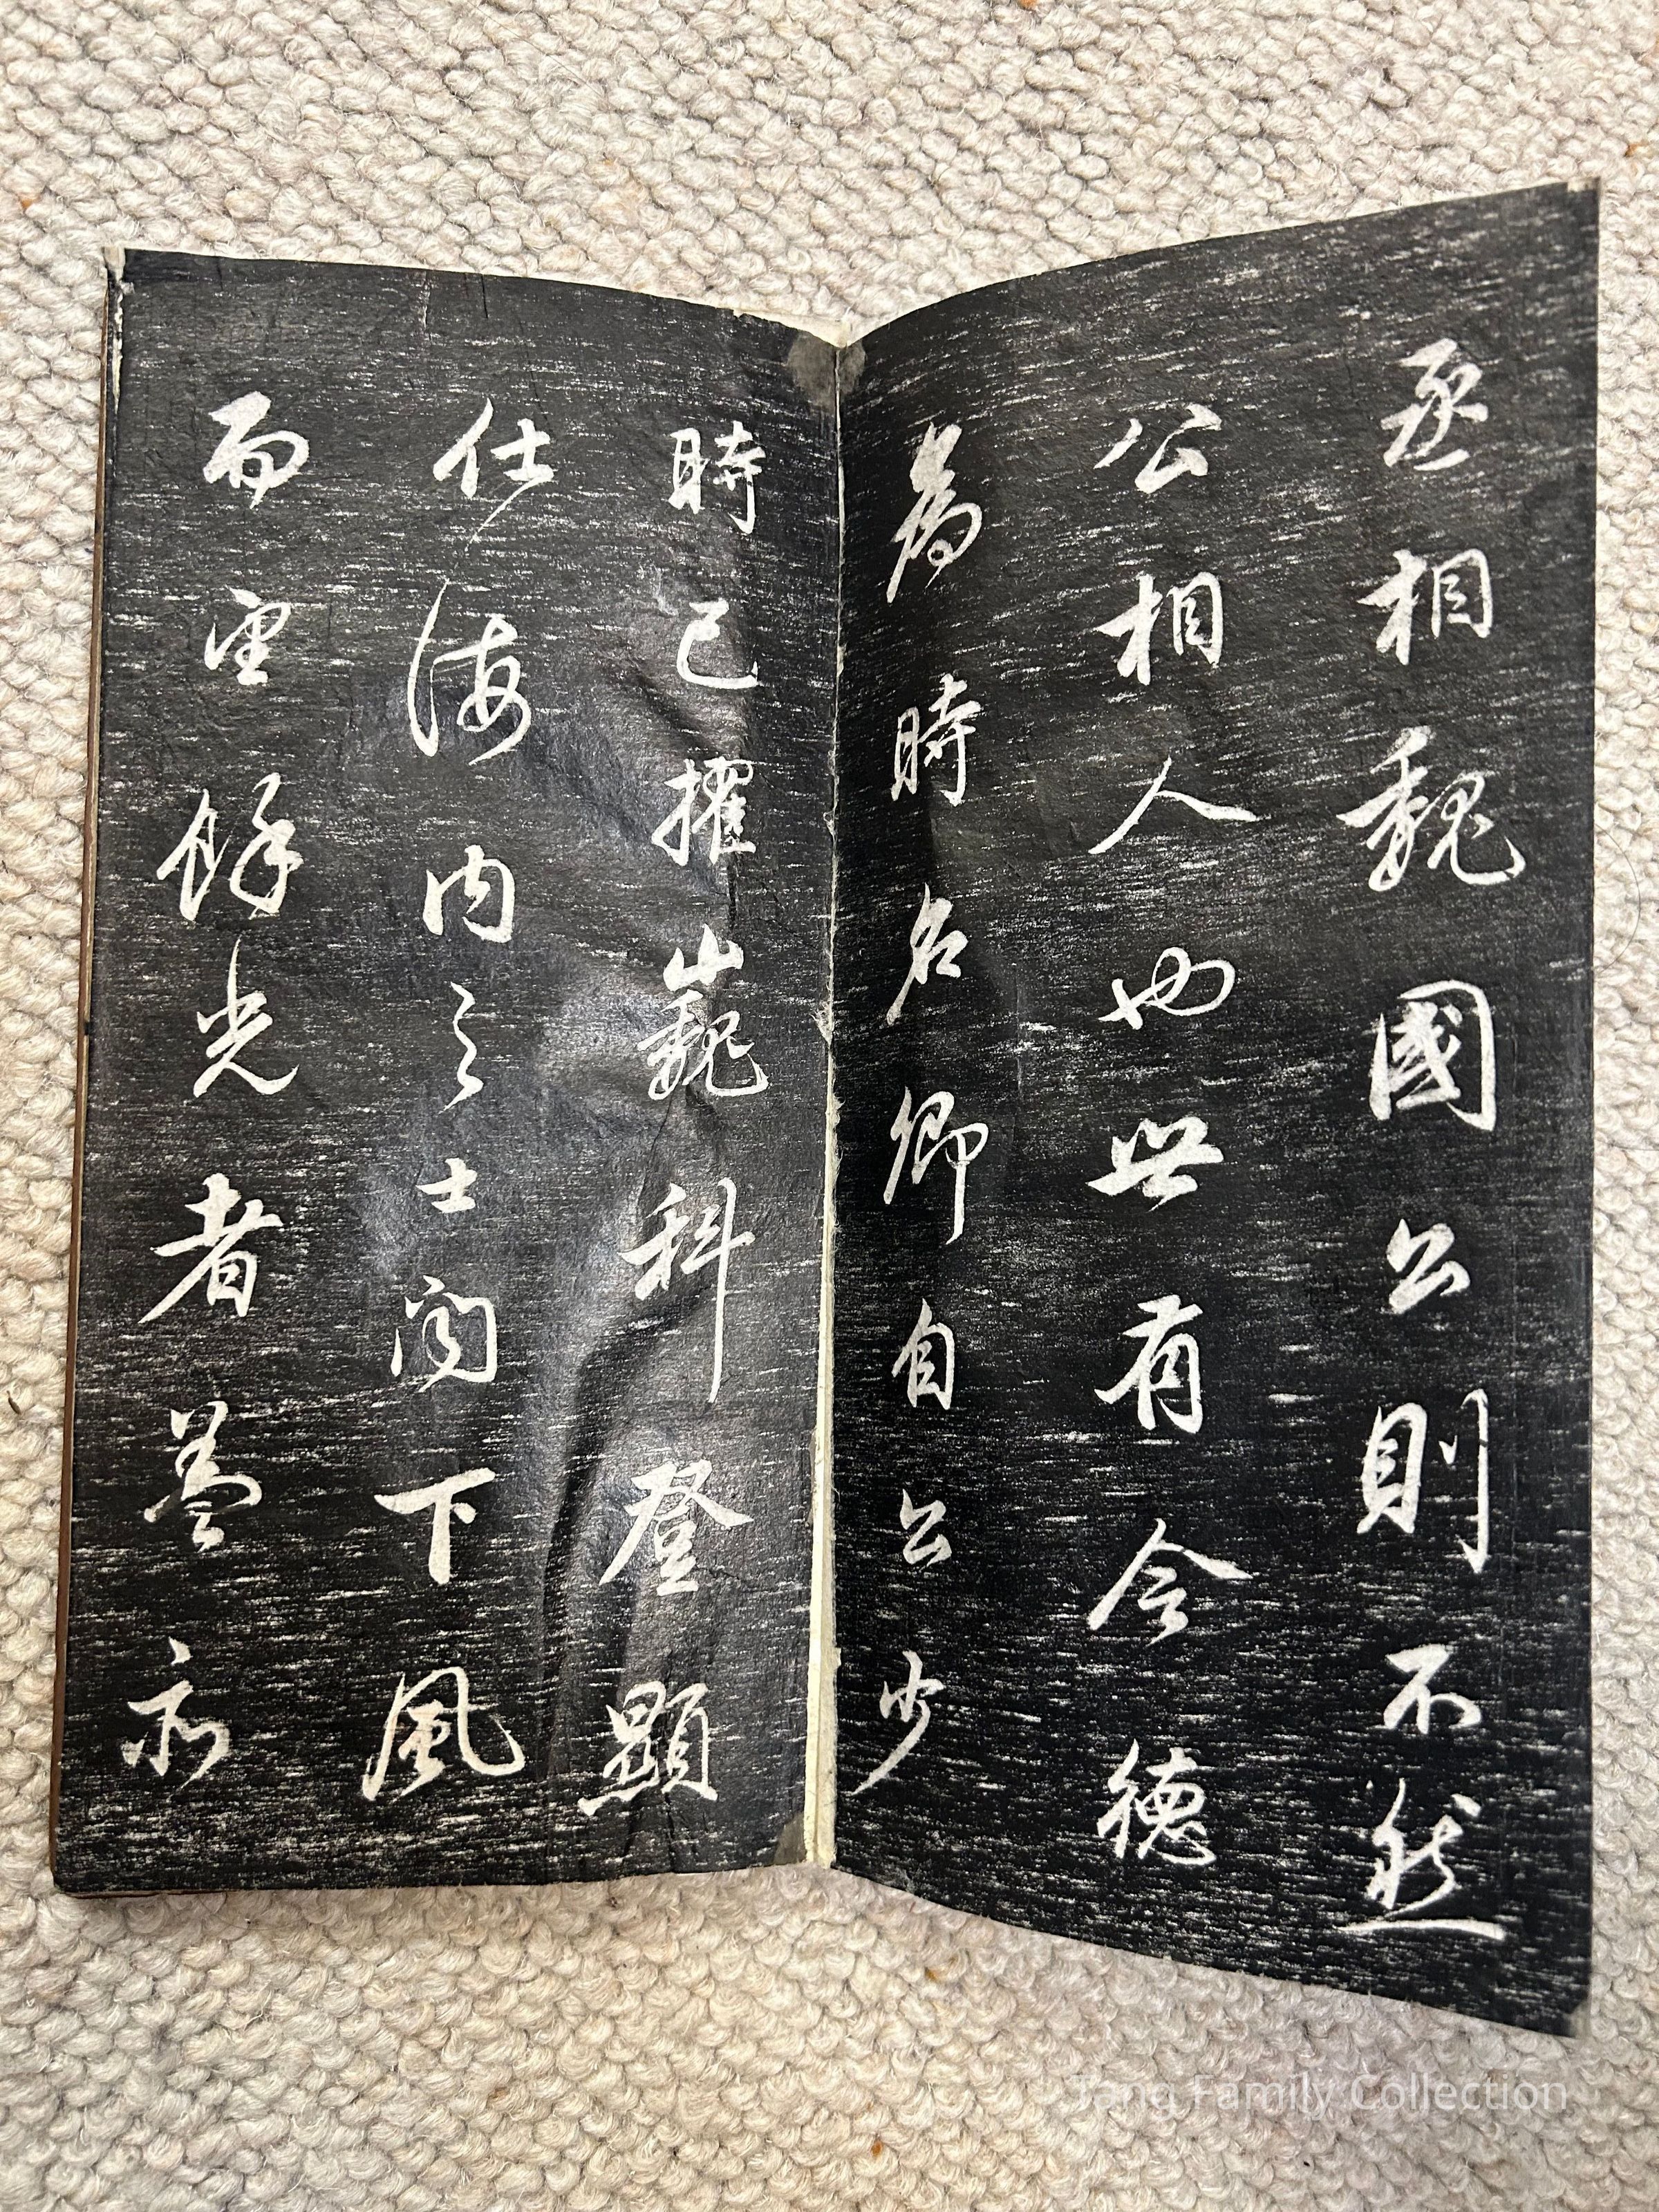 丞相魏國公則不然
公相人也世有令德
為時名卿自公少
時已擢巍科登顯
仕海內之士聞下風
而望餘光者蓋亦
Tang Family Collection